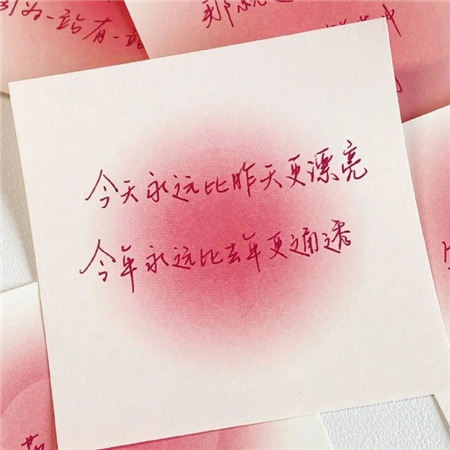 引为一站有一站
今天永远比昨天更漂亮
今年永远比去年更通透